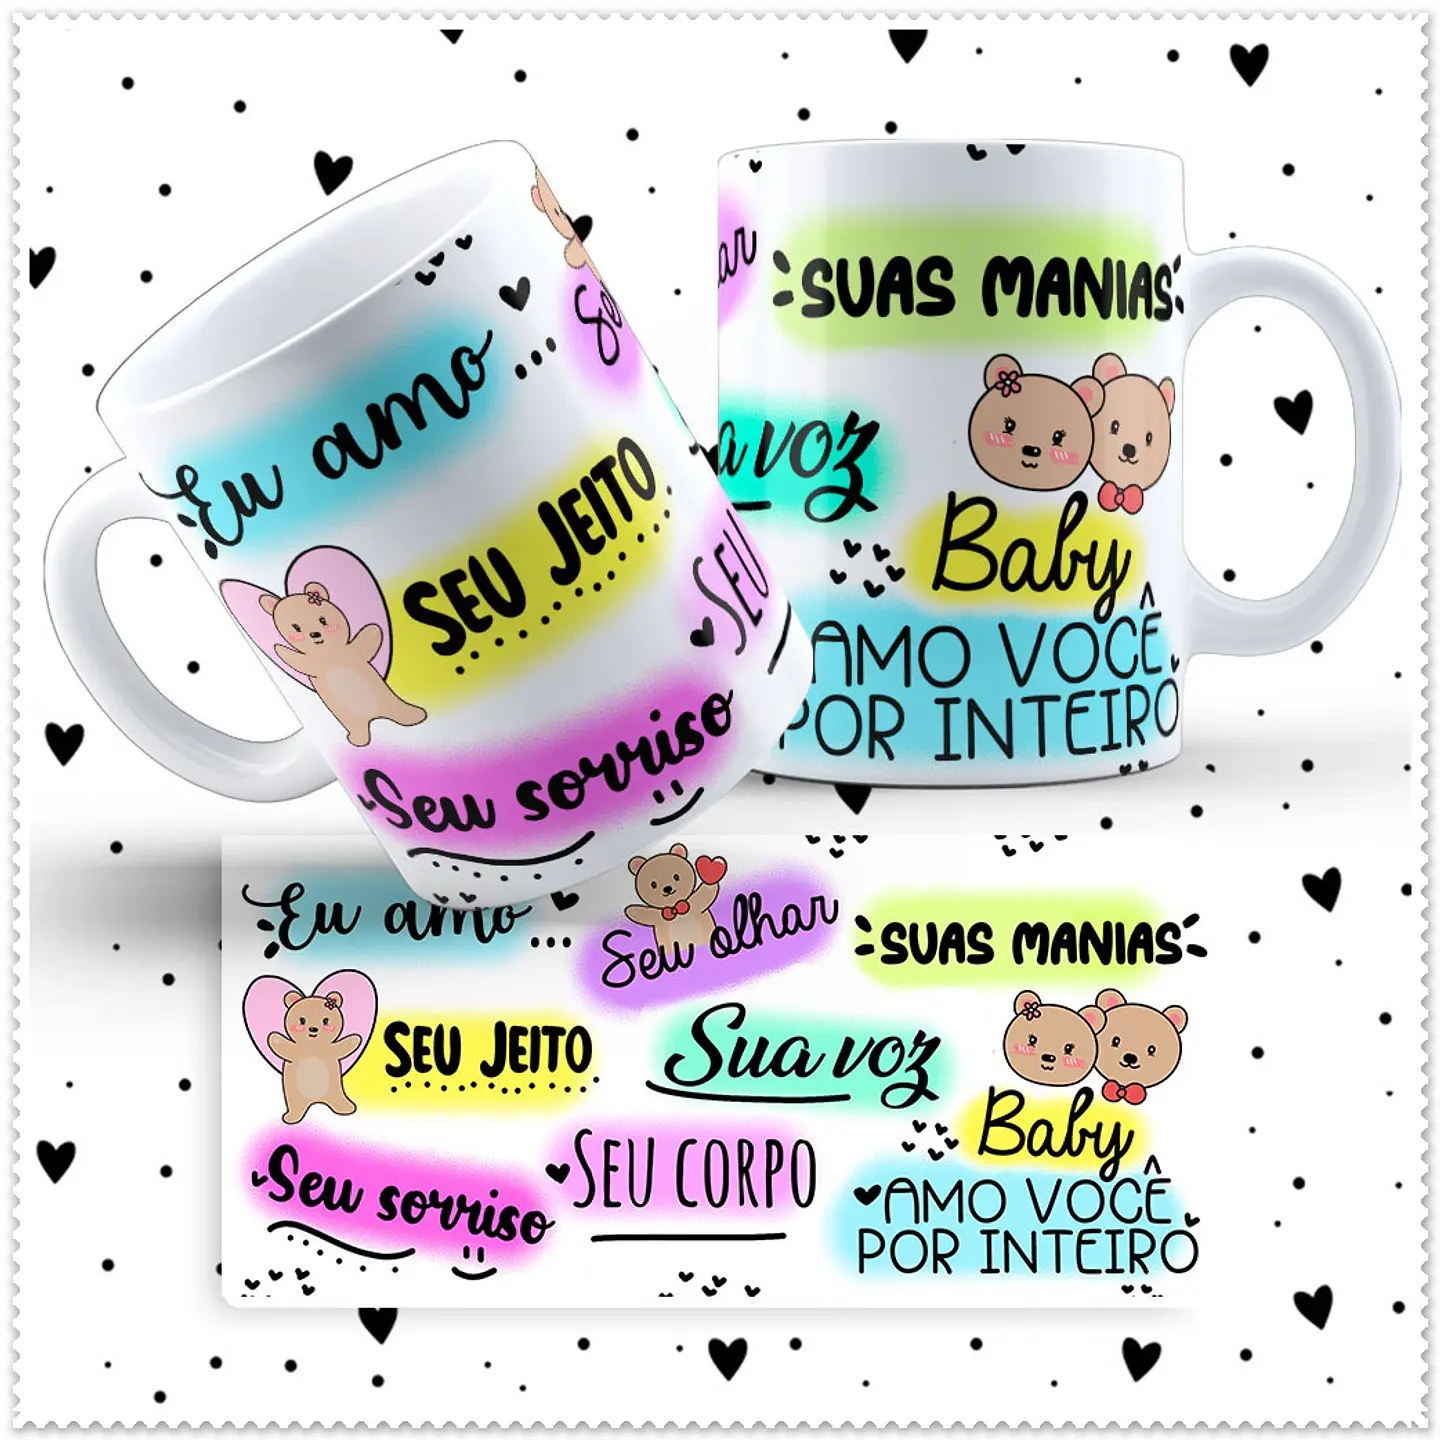 Eu amo...
So
SEU JEITO
SEU
Seu sorriso
ar
SUAS MANIAS
a voz
Baby
AMO VOCÊ
POR INTEIRO
Eu amo...
Seu olhar
SUAS MANIAS
SEU JEITO
Sua voz
Baby
Seu sorriso
SEU CORPO
AMO VOCÊ
POR INTEIRO